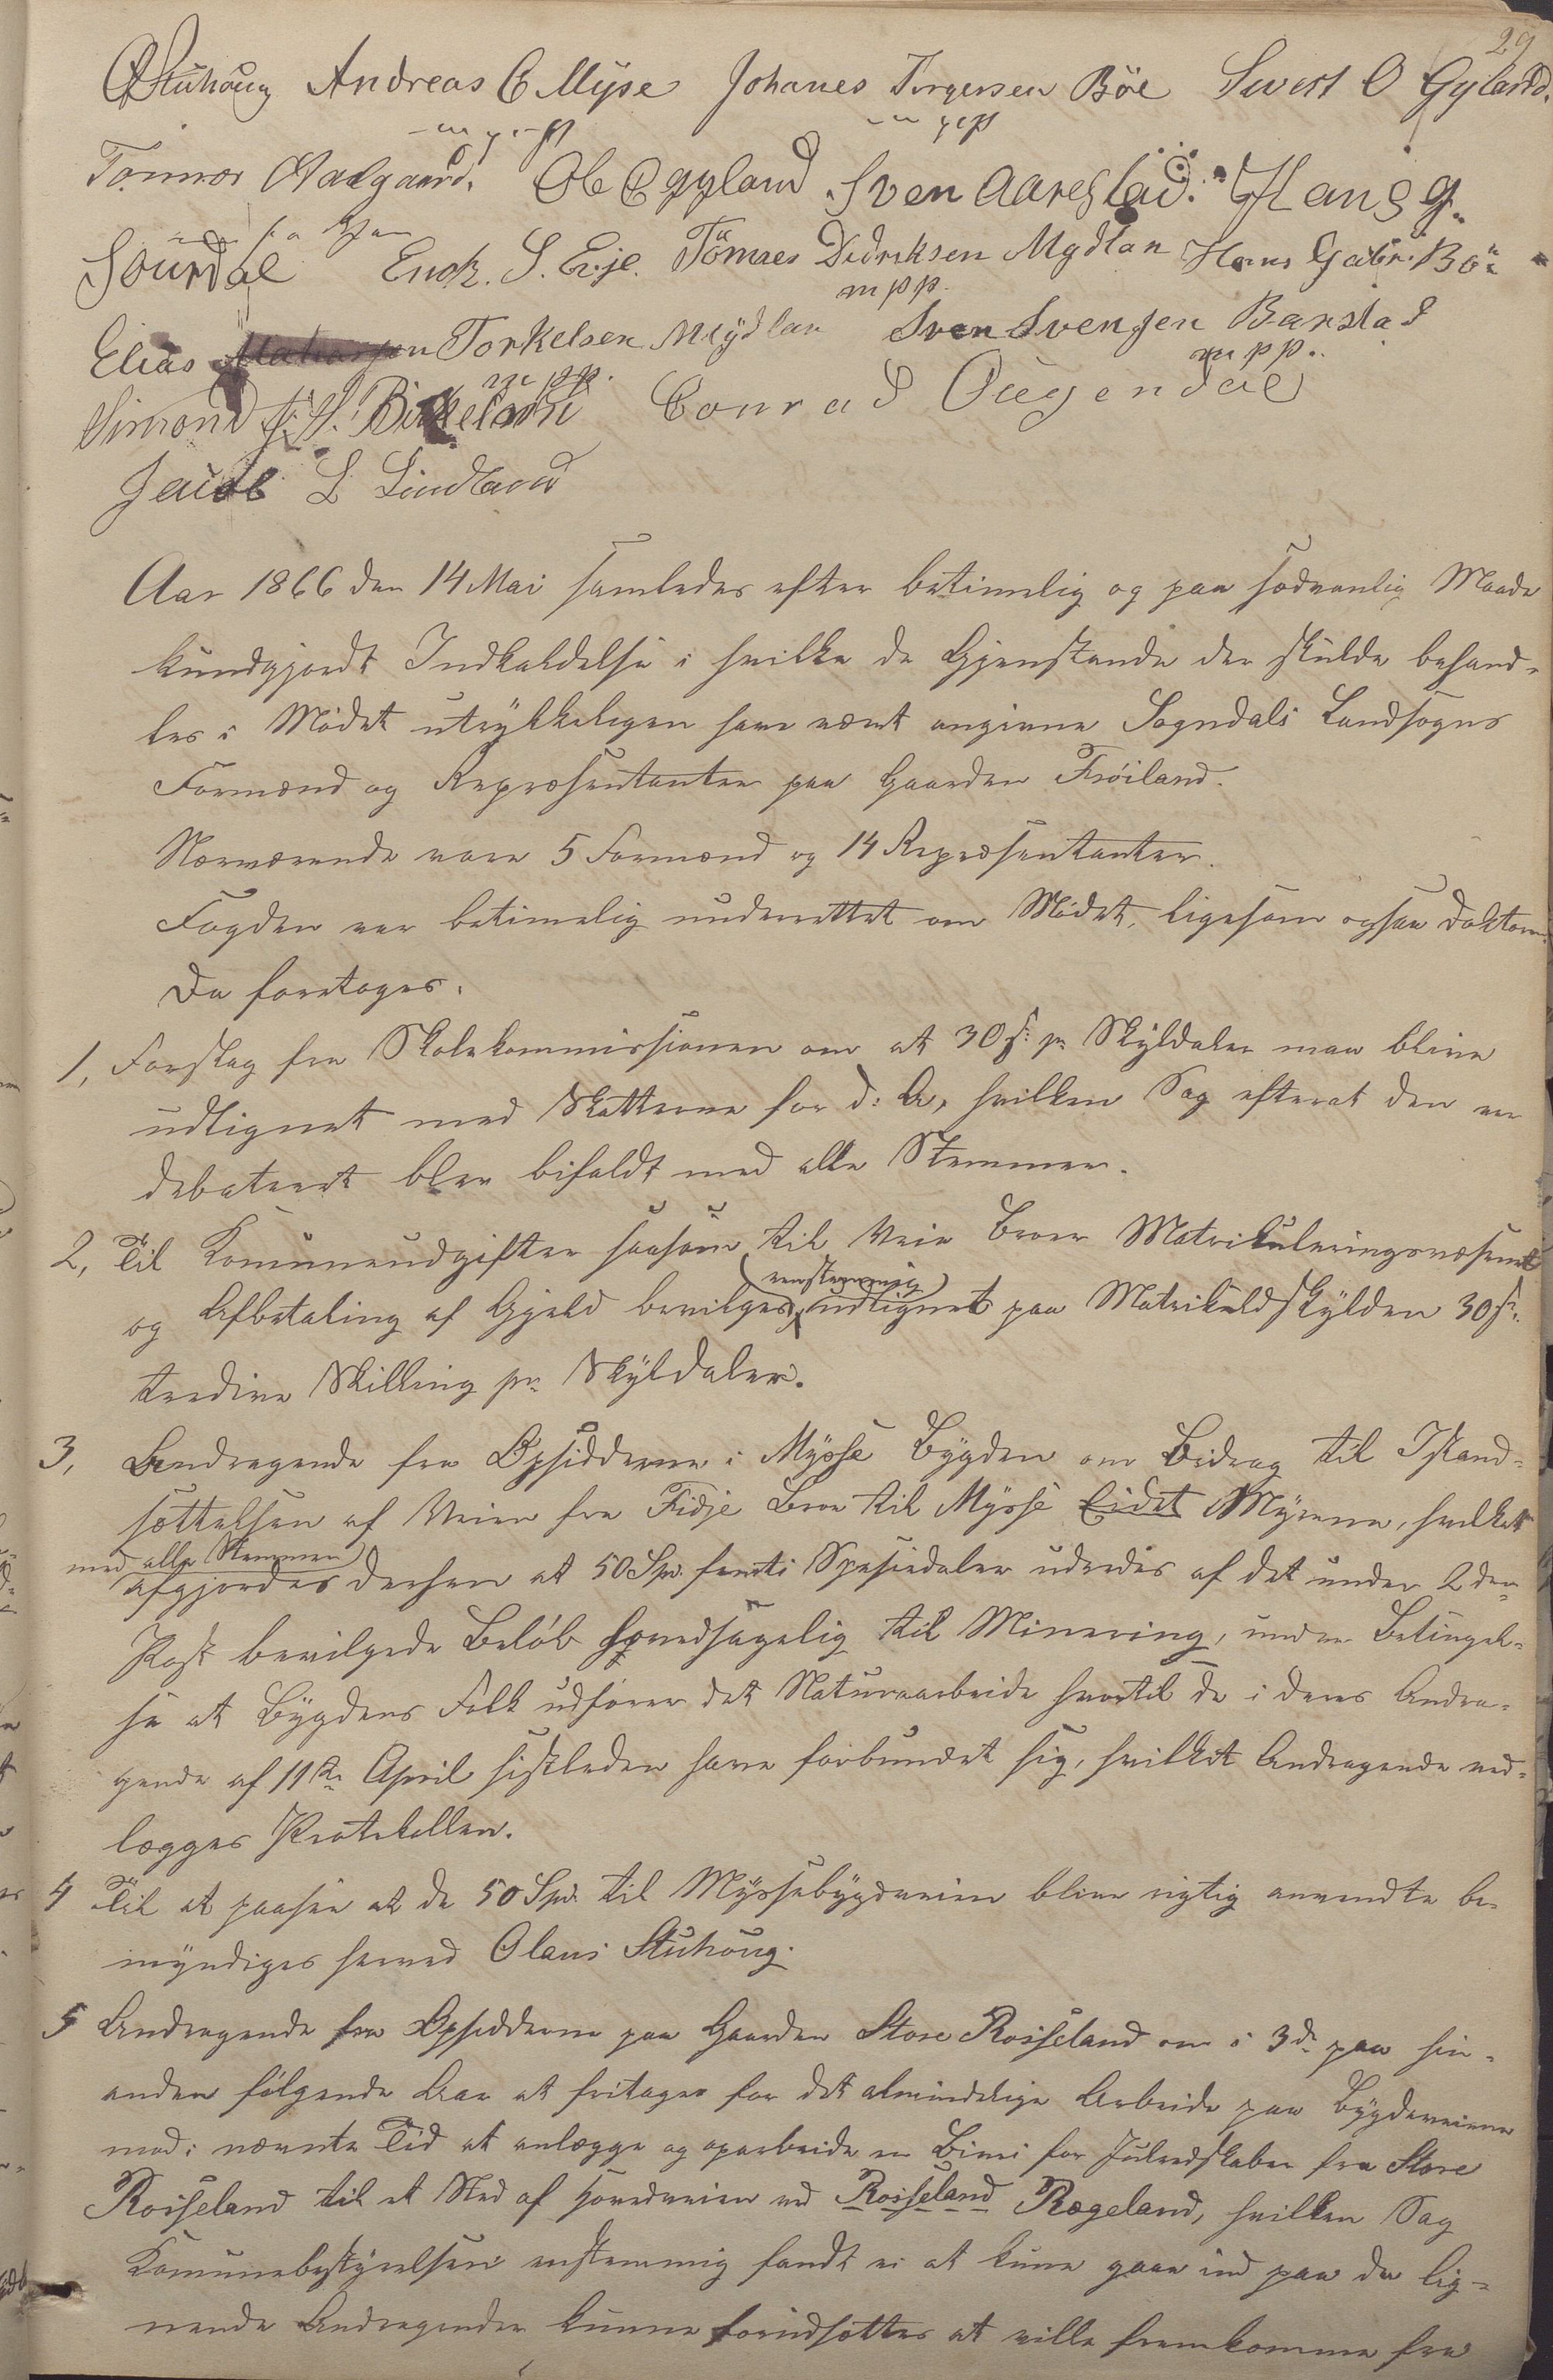 29
O Stuhoug Andreas C Mysse Johanes Torgersen Böe Sivert O Gyland.
Tonnes Aalgaard. Ole O Eggland Sven Aarestad. Hans G.
Sourdal Enok. S. Evje. Tönnes Didriksen Mydlan Hans Gabr. Böe
m p p.
Elias Torkelsen Mydlan Sven Svensen Barstad
m p p. m p p.
Simond Birkeland Conrad Ougendal
Jacob L Lindland
Aar 1866 den 14 Mai samledes efter betimelig og paa sedvanlig Maade
kundgjordt Indkaldelse i hvilke de Gjenstande der skulde behand-
les i Mødet utrykkeligen have været angivne Sogndals Landsogns
Formænd og Repræsentanter paa Gaarden Frøiland.
Nærværende vare 5 Formænd og 14 Repræsentanter.
Fogden var betimelig underrettet om Mødet, ligesom ogsaa Doktoren.
Da foretoges:
1, Forslag fra Skolekommissionen om at 30 s: pr Skyldaler maa blive
udlignet med Skatterne for d: A, hvilken Sag efterat den var
debateret blev bifaldt med alle Stemmer.
2, Til Komuneudgifter saasom til Veie Broer Matrikuleringsvæsenet
(eenstemmig)
og Afbetaling af Gjeld bevilges udlignet paa Matrikuldskylden 30 s:
tredive Skilling pr Skyldaler.
3, Andragende fra Opsidderne i Mysse Bygden om Bidrag til Istand-
sættelsen af Veien fra Fidje Broe til Mysse Eidet Myrene, hvilket
med alle Stemmer
afgjordes derhen at 50 Spd. femti Spesiedaler uderedes af det under 2den
Post bevilgede Beløb hovedsagelig til Minering, under Betingel-
se at Bygdens Folk udfører det Naturarbeide hvortil de i deres Andra-
gende af 11te April sistleden have forbundet sig, hvilket Andragende ved-
lægges Protokollen.
4 Til at paasee at de 50 Spd. til Myssebygdveien blive rigtig anvendte be-
myndiges herved Olaus Stuhoug.
5 Andragende fra Opsidderne paa Gaarden Store Roisseland om i 3de paa hin-
anden følgende Aar at fritages for det almindelige Arbeide paa Bygdeveiene
mod i nævnte Tid at anlægge og oparbeide en Bivei for Julredskaber fra Store
Roisseland til et Sted af Hovedveien ved Roisseland Rægeland, hvilken Sag
Komunebestyrelsen enstemmig fandt ei at kune gaae ind paa da lig-
nende Andragender kunne forudsættes at ville fremkomme fra